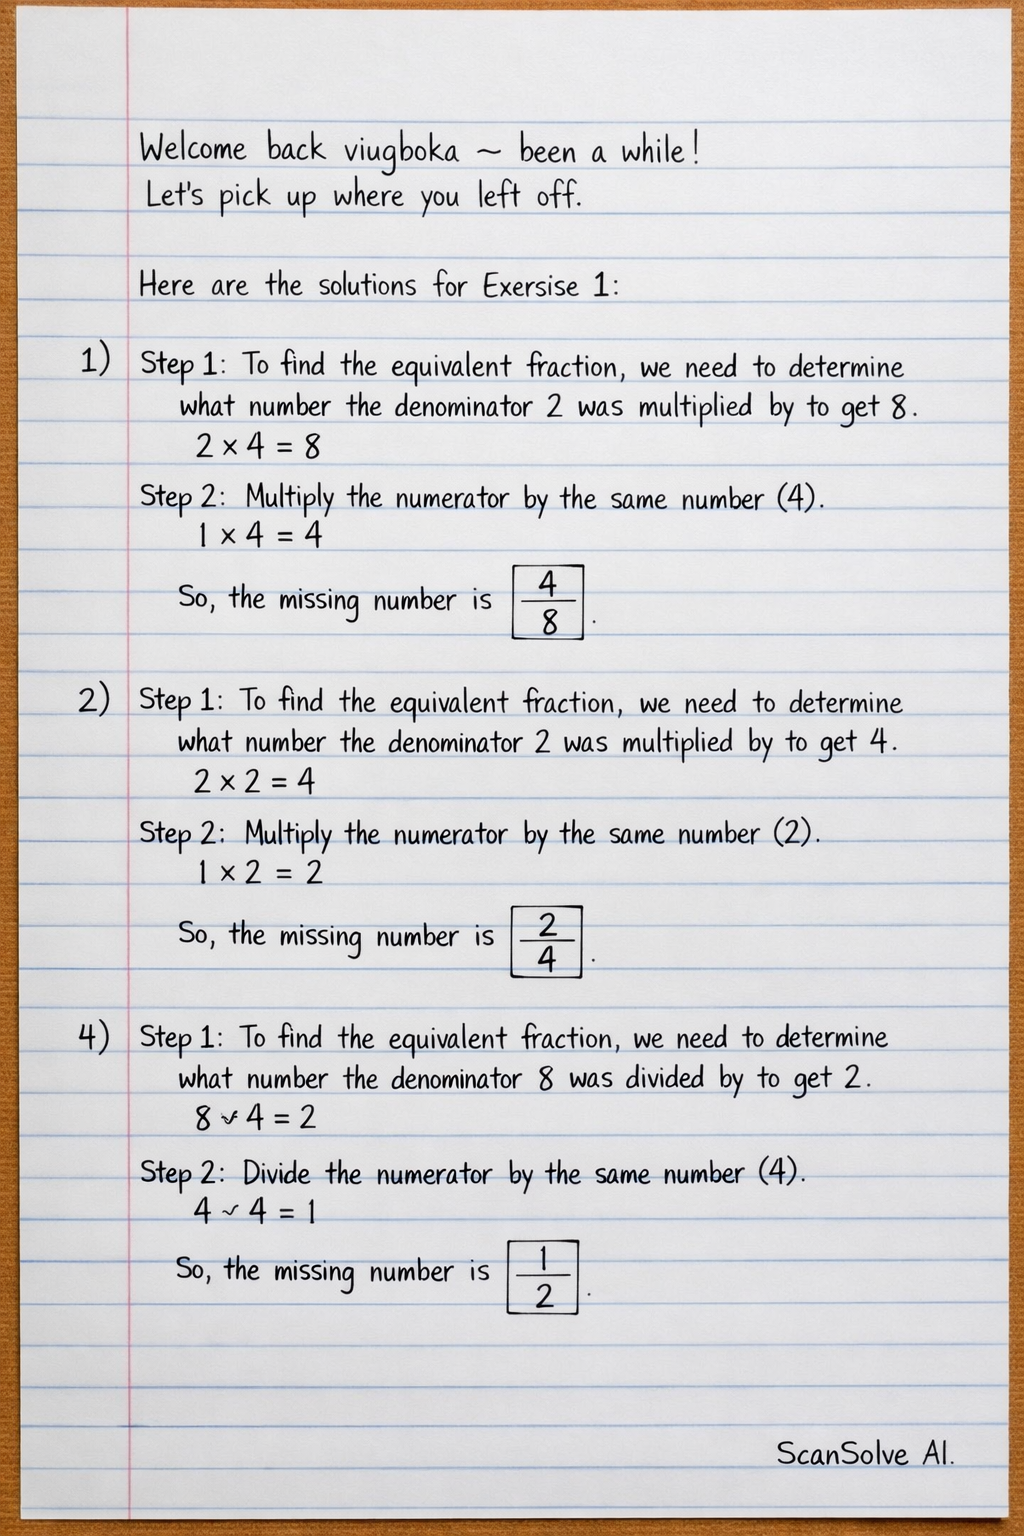 Welcome back viugboka ~ been a while!
Let's pick up where you left off.
Here are the solutions for Exersise 1:
1) Step 1: To find the equivalent fraction, we need to determine
what number the denominator 2 was multiplied by to get 8.
2 × 4 = 8
Step 2: Multiply the numerator by the same number (4).
1 × 4 = 4
So, the missing number is 4/8.
2) Step 1: To find the equivalent fraction, we need to determine
what number the denominator 2 was multiplied by to get 4.
2 × 2 = 4
Step 2: Multiply the numerator by the same number (2).
1 × 2 = 2
So, the missing number is 2/4.
4) Step 1: To find the equivalent fraction, we need to determine
what number the denominator 8 was divided by to get 2.
8 4 = 2
Step 2: Divide the numerator by the same number (4).
4 ~ 4 = 1
So, the missing number is 1/2.
ScanSolve AI.